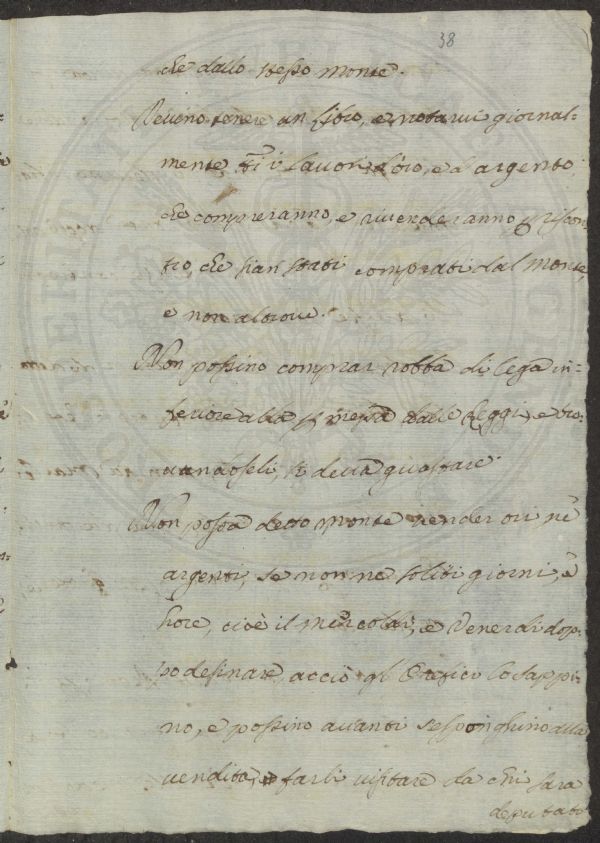 38
che dallo stesso monte.
Devino tenere un libro, e notarui giornal=
mente tti i lauori d'oro, e d'argento
che compreranno, e riuenderanno p riscon
tro, che sian stati comprati dal monte,
e non altroue.
Non possino comprar robba di lega in=
feriore alla pmessa dalle leggi, e tro=
uandoseli, si deua guastare.
Non possa detto monte vender ori, nè
argenti, se non ne soliti giorni, è
hore, cioè il mercoldi, e Venerdi dop=
po desinare, acciò gl'Orefici lo sappi=
no, e possino auanti s'esponghino alla
vendita, farli visitare da chi sara
deputato